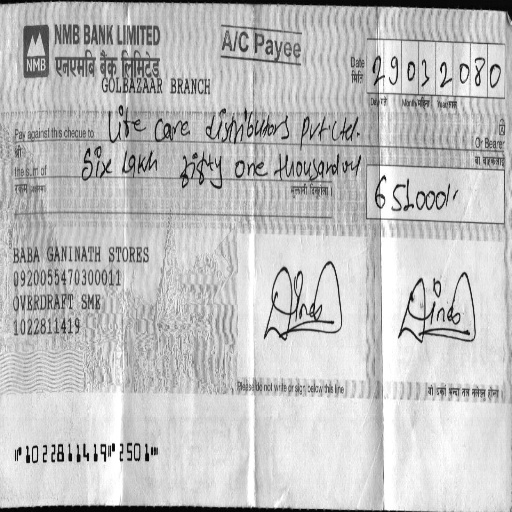 NMB BANK LIMITED
एनएमबि बैंक लिमिटेड
NMB
GOLBAZAAR BRANCH
A/C Payee
Date
मिति
29032080
Day/गते Month/महिना Year/साल
Pay against this cheque to Life Care distributors Pvt. Ltd.
श्री
Or Bearer
the sum of Six lakh fifty one thousand only
रकम
651000/-
BABA GANINATH STORES
0920055470300011
OVERDRAFT SME
1022811419
Please do not write or sign below this line
⑈1022811419⑈2501⑈